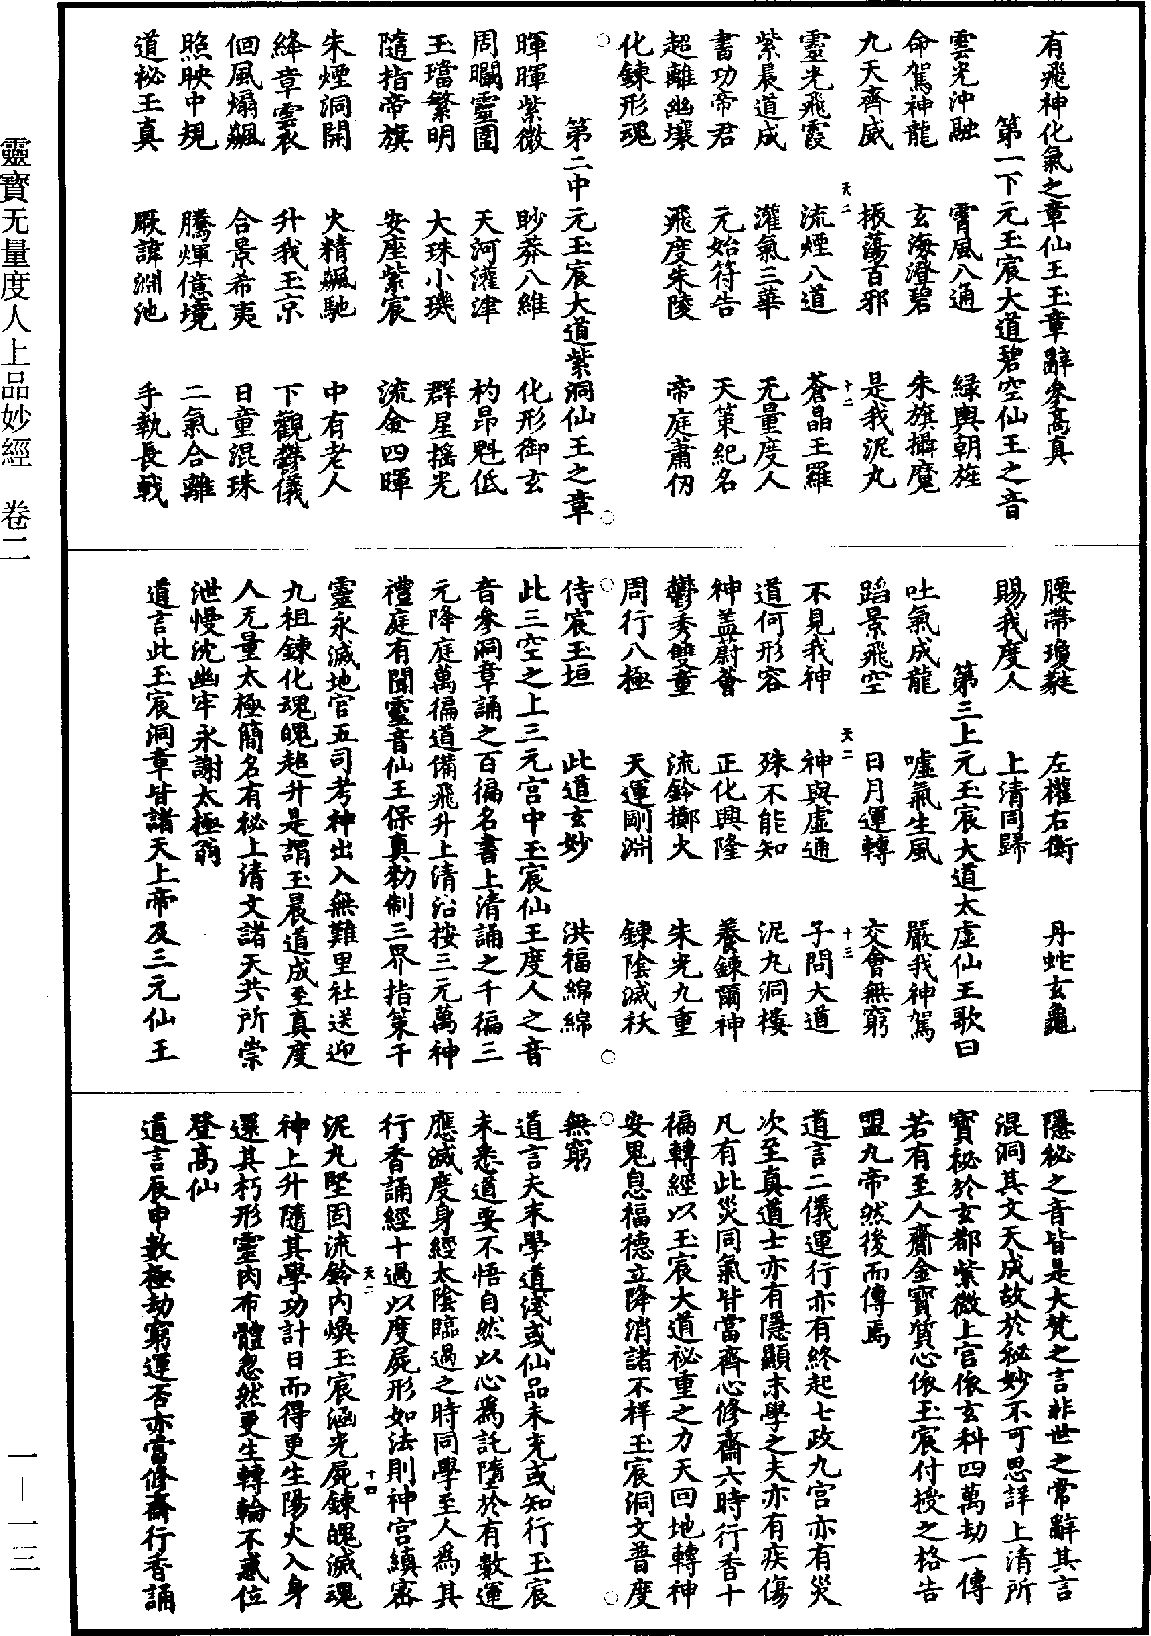 有飛神化氣之章仙王玉章辭參高真
第一下元玉宸大道碧空仙王之音
雲光沖融　霄風八通　綠輿朝旌
命駕神龍　玄海澄碧　朱旗攝魔
九天齊威　振蕩百邪　是我泥丸
天二　十二
靈光飛霞　流煙八道　蒼晶玉羅
紫晨道成　灌氣三華　无量度人
書功帝君　元始符告　天策紀名
超離幽壤　飛度朱陵　帝庭肅仞
化鍊形魂
第二中元玉宸大道紫洞仙王之章
暉暉紫微　眇莽八維　化形御玄
周矙靈圉　天河灌津　杓昂魁低
玉璫繁明　大珠小璣　群星搖光
隨指帝旗　安座紫宸　流金四暉
朱煙洞開　火精飆馳　中有老人
絳章雲衣　升我玉京　下觀辯儀
佪風煽飆　合景希夷　日童混珠
照映中規　騰煇億境　二氣合離
道祕玉真　厥諱淵池　手執長戟
腰帶瓊蕤　左權右衡　丹虵玄龜
賜我度人　上清同歸
第三上元玉宸大道太虛仙王歌曰
吐氣成龍　噓氣生風　嚴我神駕
蹈景飛空　日月運轉　交會無窮
天二　十三
不見我神　神與虛通　子問大道
道何形容　殊不能知　泥丸洞樓
神蓋蔚薈　正化興隆　養鍊爾神
鬱秀雙童　流鈴擲火　朱光九重
周行八極　天運剛淵　鍊陰滅祅
侍宸玉垣　此道玄妙　洪福綿綿
此三空之上三元宮中玉宸仙王度人之音
音參洞章誦之百徧名書上清誦之千徧三
元降庭萬徧道備飛升上清沿按三元萬神
禮庭有聞靈音仙王保真勑制三界指策千
靈永滅地官五司考神出入無難里社送迎
九祖鍊化魂魄超升是謂玉晨道成至真度
人无量太極簡名有秘上清文諸天共所崇
泄慢沈幽牢永謝太極翁
道言此玉宸洞章皆諸天上帝及三元仙王
隱秘之音皆是大梵之言非世之常辭其言
混洞其文天成故於秘妙不可思詳上清所
寶秘於玄都紫微上宮依玄科四萬劫一傳
若有至人齎金寶質心依玉宸付授之格告
盟九帝然後而傳焉
道言二儀運行亦有終起七政九宮亦有災
次至真道士亦有隱顯末學之夫亦有疾傷
凡有此災同氣皆當齊心修齋六時行香十
徧轉經以玉宸大道祕重之力天回地轉神
安鬼息福德立降消諸不祥玉宸洞文普度
無窮
道言夫末學道淺或仙品未充或知行玉宸
未悉道要不悟自然以心為託隨於有數運
應滅度身經太陰臨過之時同學至人為其
行香誦經十過以度屍形如法則神宮縝密
天二　十四
泥丸堅固流鈴內煥玉宸涵光屍鍊魄滅魂
神上升隨其學功計日而得更生陽火入身
還其朽形靈肉布體忽然更生轉輪不惑位
登高仙
道言辰申數極劫窮運否亦當修齋行香誦
靈寶无量度人上品妙經　卷二
一—一三